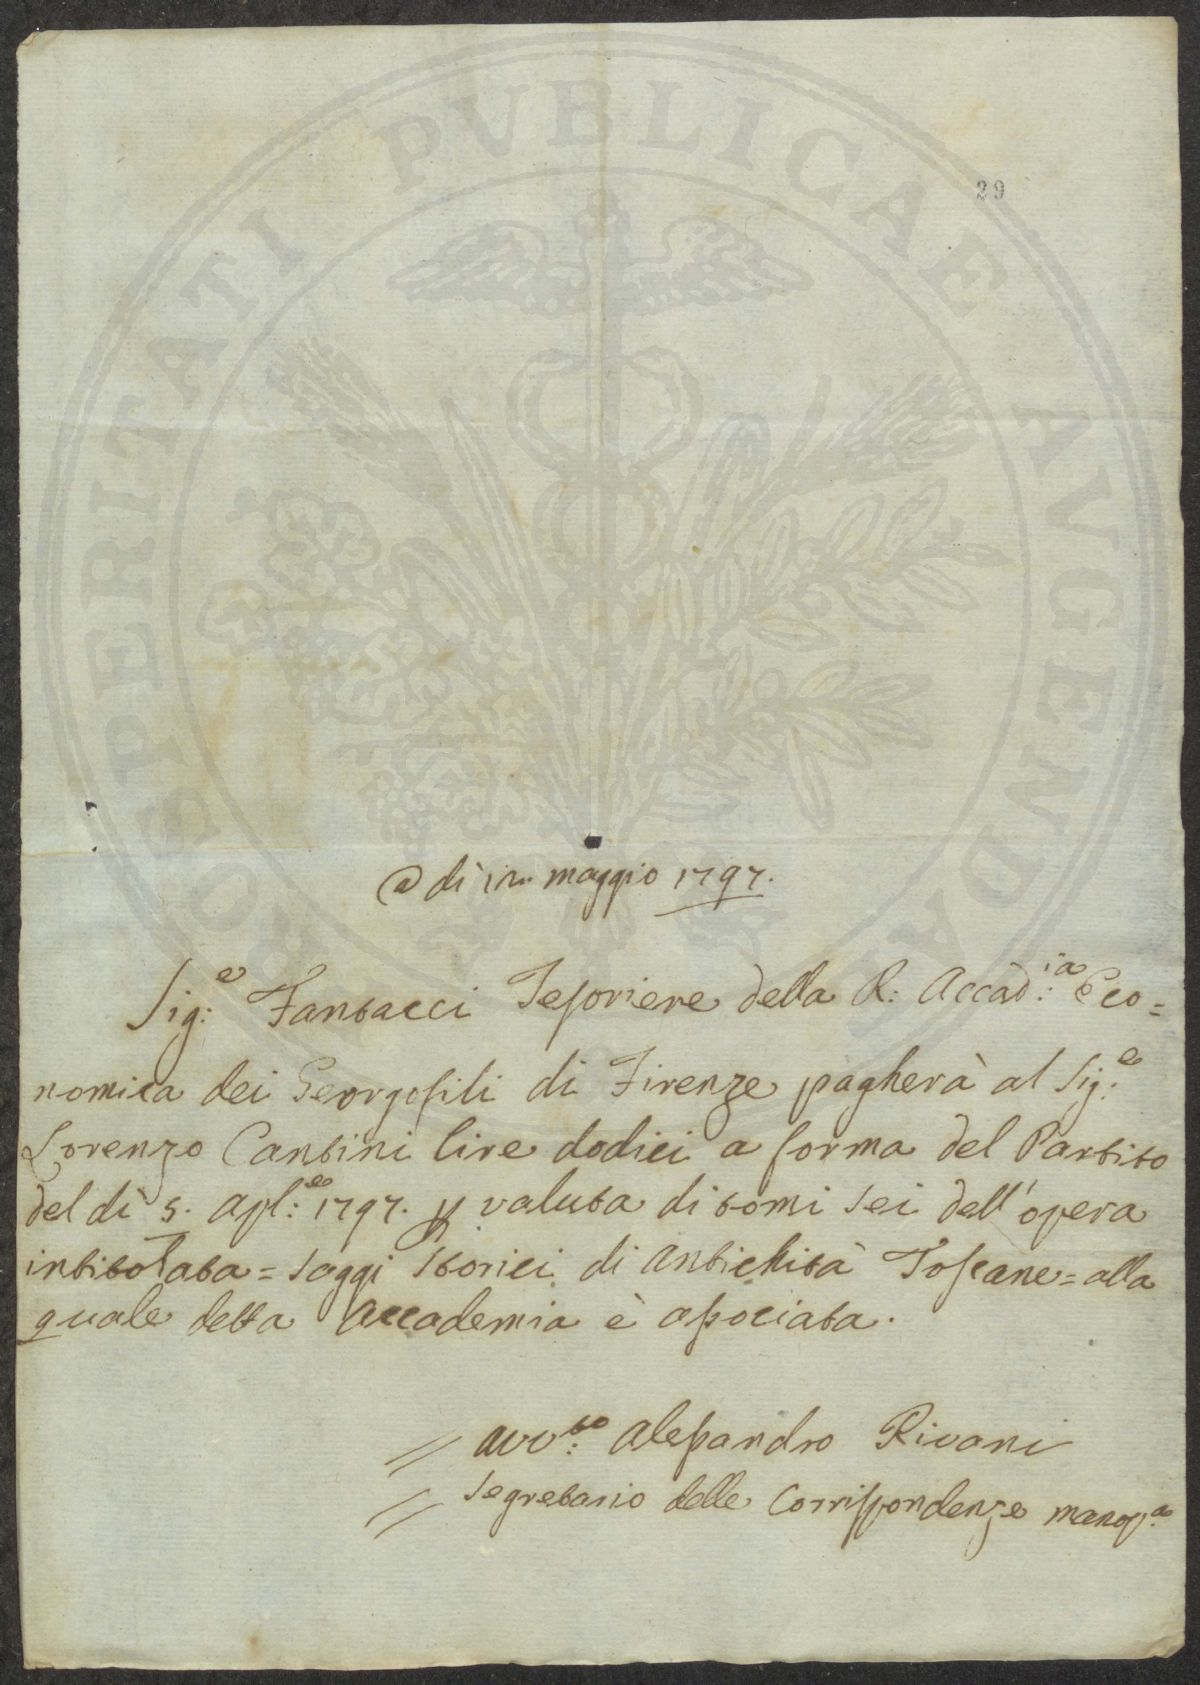 PROSPERITATI PUBLICAE AUGENDAE
29
@ dì 12 maggio 1797.
Sig:e Fantacci Tesoriere della R: Accàd:ia Eco=
nomica dei Georgofili di Firenze pagherà al Sig:e
Lorenzo Cantini lire dodici a forma del Partito
del dì 5. apl:e 1797. p valuta di tomi sei dell'opera
intitolata = Saggi Storici di Antichità Toscane = alla
quale detta Accademia è associata.
// Avv:to Alessandro Rivani
// Segretario delle Corrispondenze manop.a